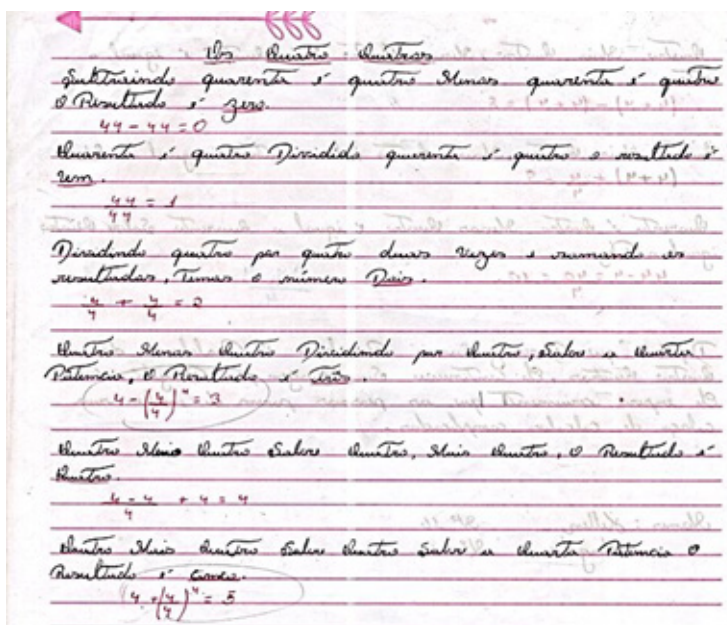 Os Quatro Quatros
Subtraindo quarenta é quatro Menos quarenta é quatro
O Resultado é zero.
44 - 44 = 0
Quarenta é quatro Dividido quarenta é quatro o resultado é
um.
44/44 = 1
Dividindo quatro por quatro duas vezes e somando os
resultados, Temos o número Dois.
4/4 + 4/4 = 2
Quatro Menos Quatro Dividindo por Quatro, Sobre a Quarta
Potencia, O Resultado é Três.
4 - (4/4)⁴ = 3
Quatro Menos Quatro Sobre Quatro, Mais Quatro, O Resultado é
Quatro.
4 - 4/4 + 4 = 4
Quatro Mais Quatro Sobre Quatro Sobre a Quarta Potencia O
Resultado é cinco.
(4 + (4/4)⁴ = 5